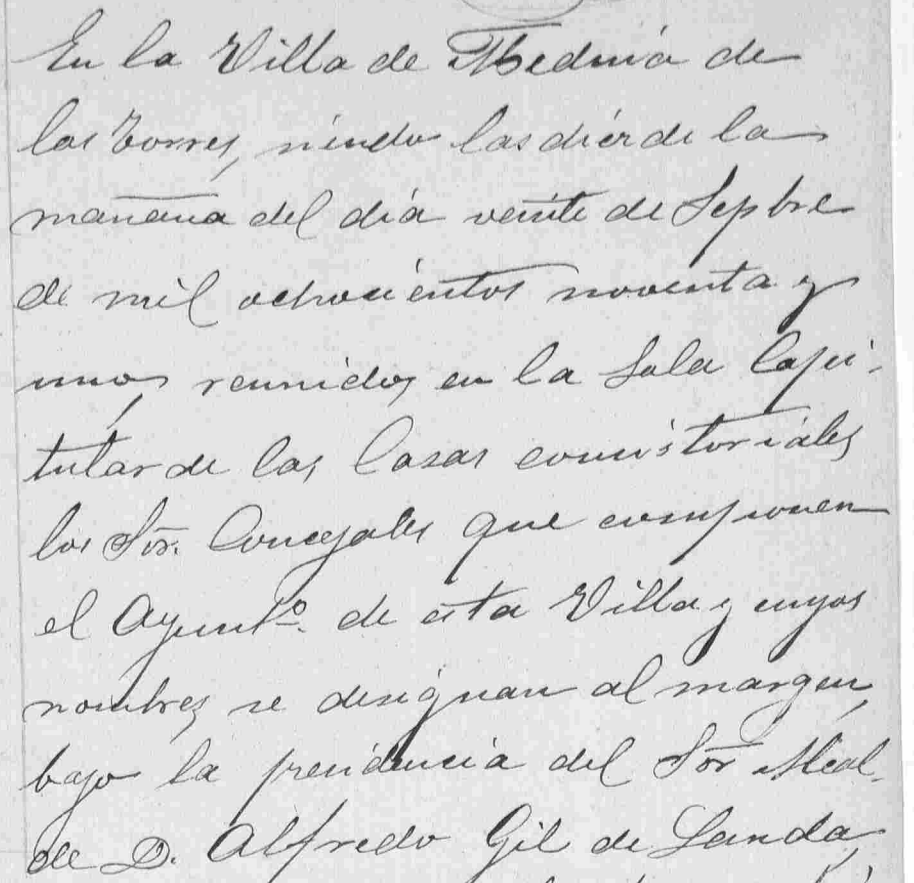 En la Villa de Medina de
las Torres, siendo las diez de la
mañana del día veinte de Sepbre
de mil ochocientos noventa y
uno, reunidos en la Sala Capi-
tular de las Casas consistoriales
los Sōr. Concejales que componen
el Ayunto. de esta Villa y cuyos
nombres se designan al margen,
bajo la presidencia del Sōr Alcal-
de D. Alfredo Gil de Landa,